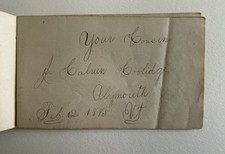 Your Cousin
J Hudson Coolidge
Plymouth
Feb 1st 1880 Vt